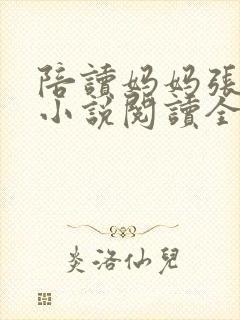 陪讀媽媽張
小說閱讀全
炎洛仙兒